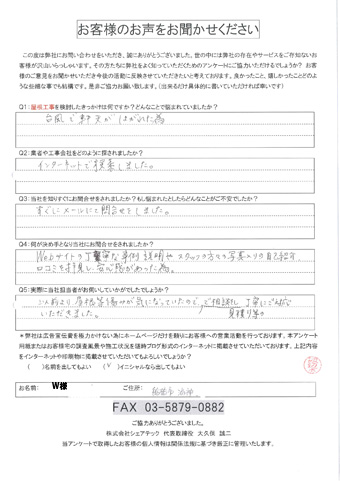 お客様のお声をお聞かせください
この度は弊社にお問い合わせをいただき、誠にありがとうございました。世の中には弊社の存在やサービスをご存知ないお
客様が沢山いらっしゃいます。その方たちに弊社をよく知っていただくためのアンケートにご協力いただけるでしょうか？ お客
様のご意見をお聞かせいただき今後の活動に反映させていただきたいと考えております。良かったこと、嬉しかったことどのよ
うな些細な事でも結構です。是非ご協力お願い致します。（出来るだけ具体的に書いていただければ幸いです）
Q1：屋根工事を検討したきっかけは何ですか？どんなことで悩まれていましたか？
台風で軒天がはがれた為
Q2：業者や工事会社をどのように探されましたか？
インターネットで検索しました。
Q3：当社を知りすぐにお問合せをされましたか？もし悩まれたとしたらどんなことがご不安でしたか？
すぐにメールにて問合せをしました。
Q4：何が決め手となり当社にお問合せをされましたか？
Webサイトの丁寧な事例説明やスタッフの方々の写真入りの自己紹介、
口コミを拝見し安心感があった為。
Q5：実際に当社担当者がお伺いしていかがでしたでしょうか？
気になっていたので、ご相談し、丁寧にご対応
いただきました。
＊弊社は広告宣伝費を極力かけない為にホームページだけを頼りにお客様への営業活動を行っております。本アンケート
用紙またはお客様宅の調査風景や施工状況を随時ブログ形式のインターネットに掲載させていただいております。上記内容
をインターネットや印刷物に掲載させていただいてもよろしいでしょうか？
（　）名前を出してもよい （✓）イニシャルなら出してもよい
お名前： W様 ご住所：
FAX 03-5879-0882
ご協力ありがとうございました。
株式会社シェアテック 代表取締役 大久保 誠二
当アンケートで取得したお客様の個人情報は関係法規に基づき厳正に管理いたします。